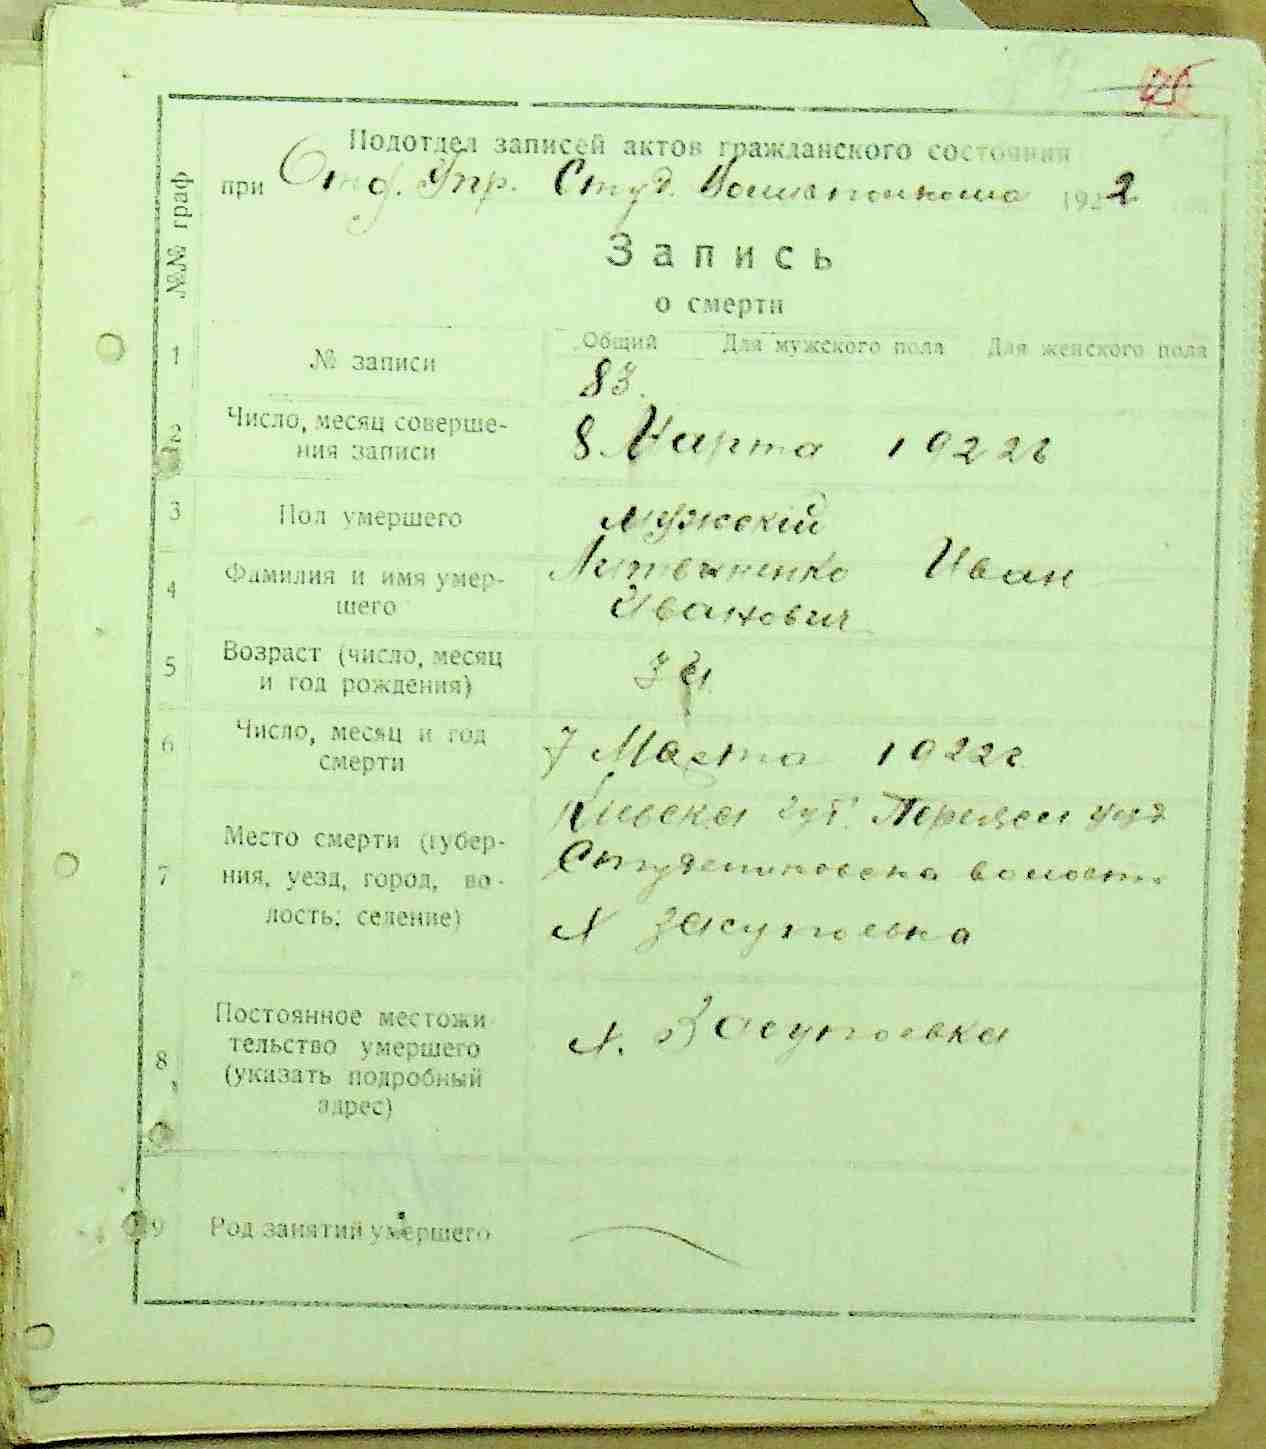 Подотдел записей актов гражданского состояния
при Отд. Упр. Студ. Волисполкома 1922
Запись
о смерти
№№ граф
Общий Для мужского пола Для женского пола
1 № записи 83.
2 Число, месяц соверше-
ния записи
8 Марта 1922 г
3 Пол умершего мужскій
4 Фамилия и имя умер-
шего
Литвиненко Иван
Иванович
5 Возраст (число, месяц
и год рождения)
6 Число, месяц и год
смерти
7 Марта 1922 г
7 Место смерти (губер-
ния, уезд, город, во-
лость, селение)
Киевска губ. уезд
Студениковска волость
х Засупоевка
8 Постоянное местожи
тельство умершего
(указать подробный
адрес)
х. Засупоевка
9 Род занятий умершего